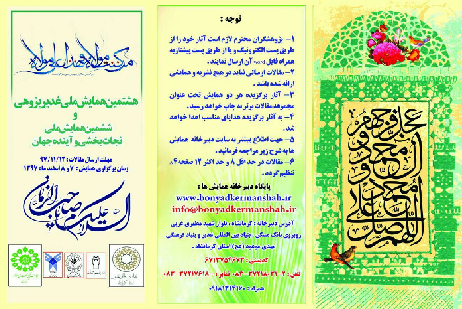 من کنت مولاه فهذا علی مولاه
هشتمین همایش ملی غدیرپژوهی
و
ششمین همایش ملی
نجات‌بخشی و آینده جهان
مهلت ارسال مقالات: ۹۷/۱۱/۱۲
زمان برگزاری همایش: ۷ و ۸ اسفند ماه ۱۳۹۷
السلام علیک یا صاحب الزمان
توجه :
۱- پژوهشگران محترم لازم است آثار خود را از
طریق پست الکترونیک و یا از طریق پست پیشتاز به
همراه فایل word آن ارسال نمایند.
۲- مقالات ارسالی نباید در هیچ نشریه و همایشی
ارائه شده باشد.
۳- آثار برگزیده هر دو همایش تحت عنوان
مجموعه مقالات برتر به چاپ خواهد رسید.
۴- به آثار برگزیده هدایای مناسب اهدا خواهد
شد.
۵- جهت اطلاع بیشتر به سایت دبیرخانه همایش
ها به شرح زیر مراجعه فرمائید.
۶- مقالات در حداقل ۸ و حداکثر ۱۲ صفحه A4
تنظیم گردد.
پایگاه دبیرخانه همایش ها :
www.bonyadkermanshah.ir
info@bonyadkermanshah.ir
آدرس دبیرخانه: کرمانشاه، بلوار شهید مظفری غربی
روبروی بانک مسکن، بنیاد بین‌المللی غدیر و بنیاد فرهنگی
مهدی موعود (عج) استان کرمانشاه.
کدپستی:
تلفن:
همراه:
اللهم صل علی
محمد و آل
محمد و
عجل فرجهم